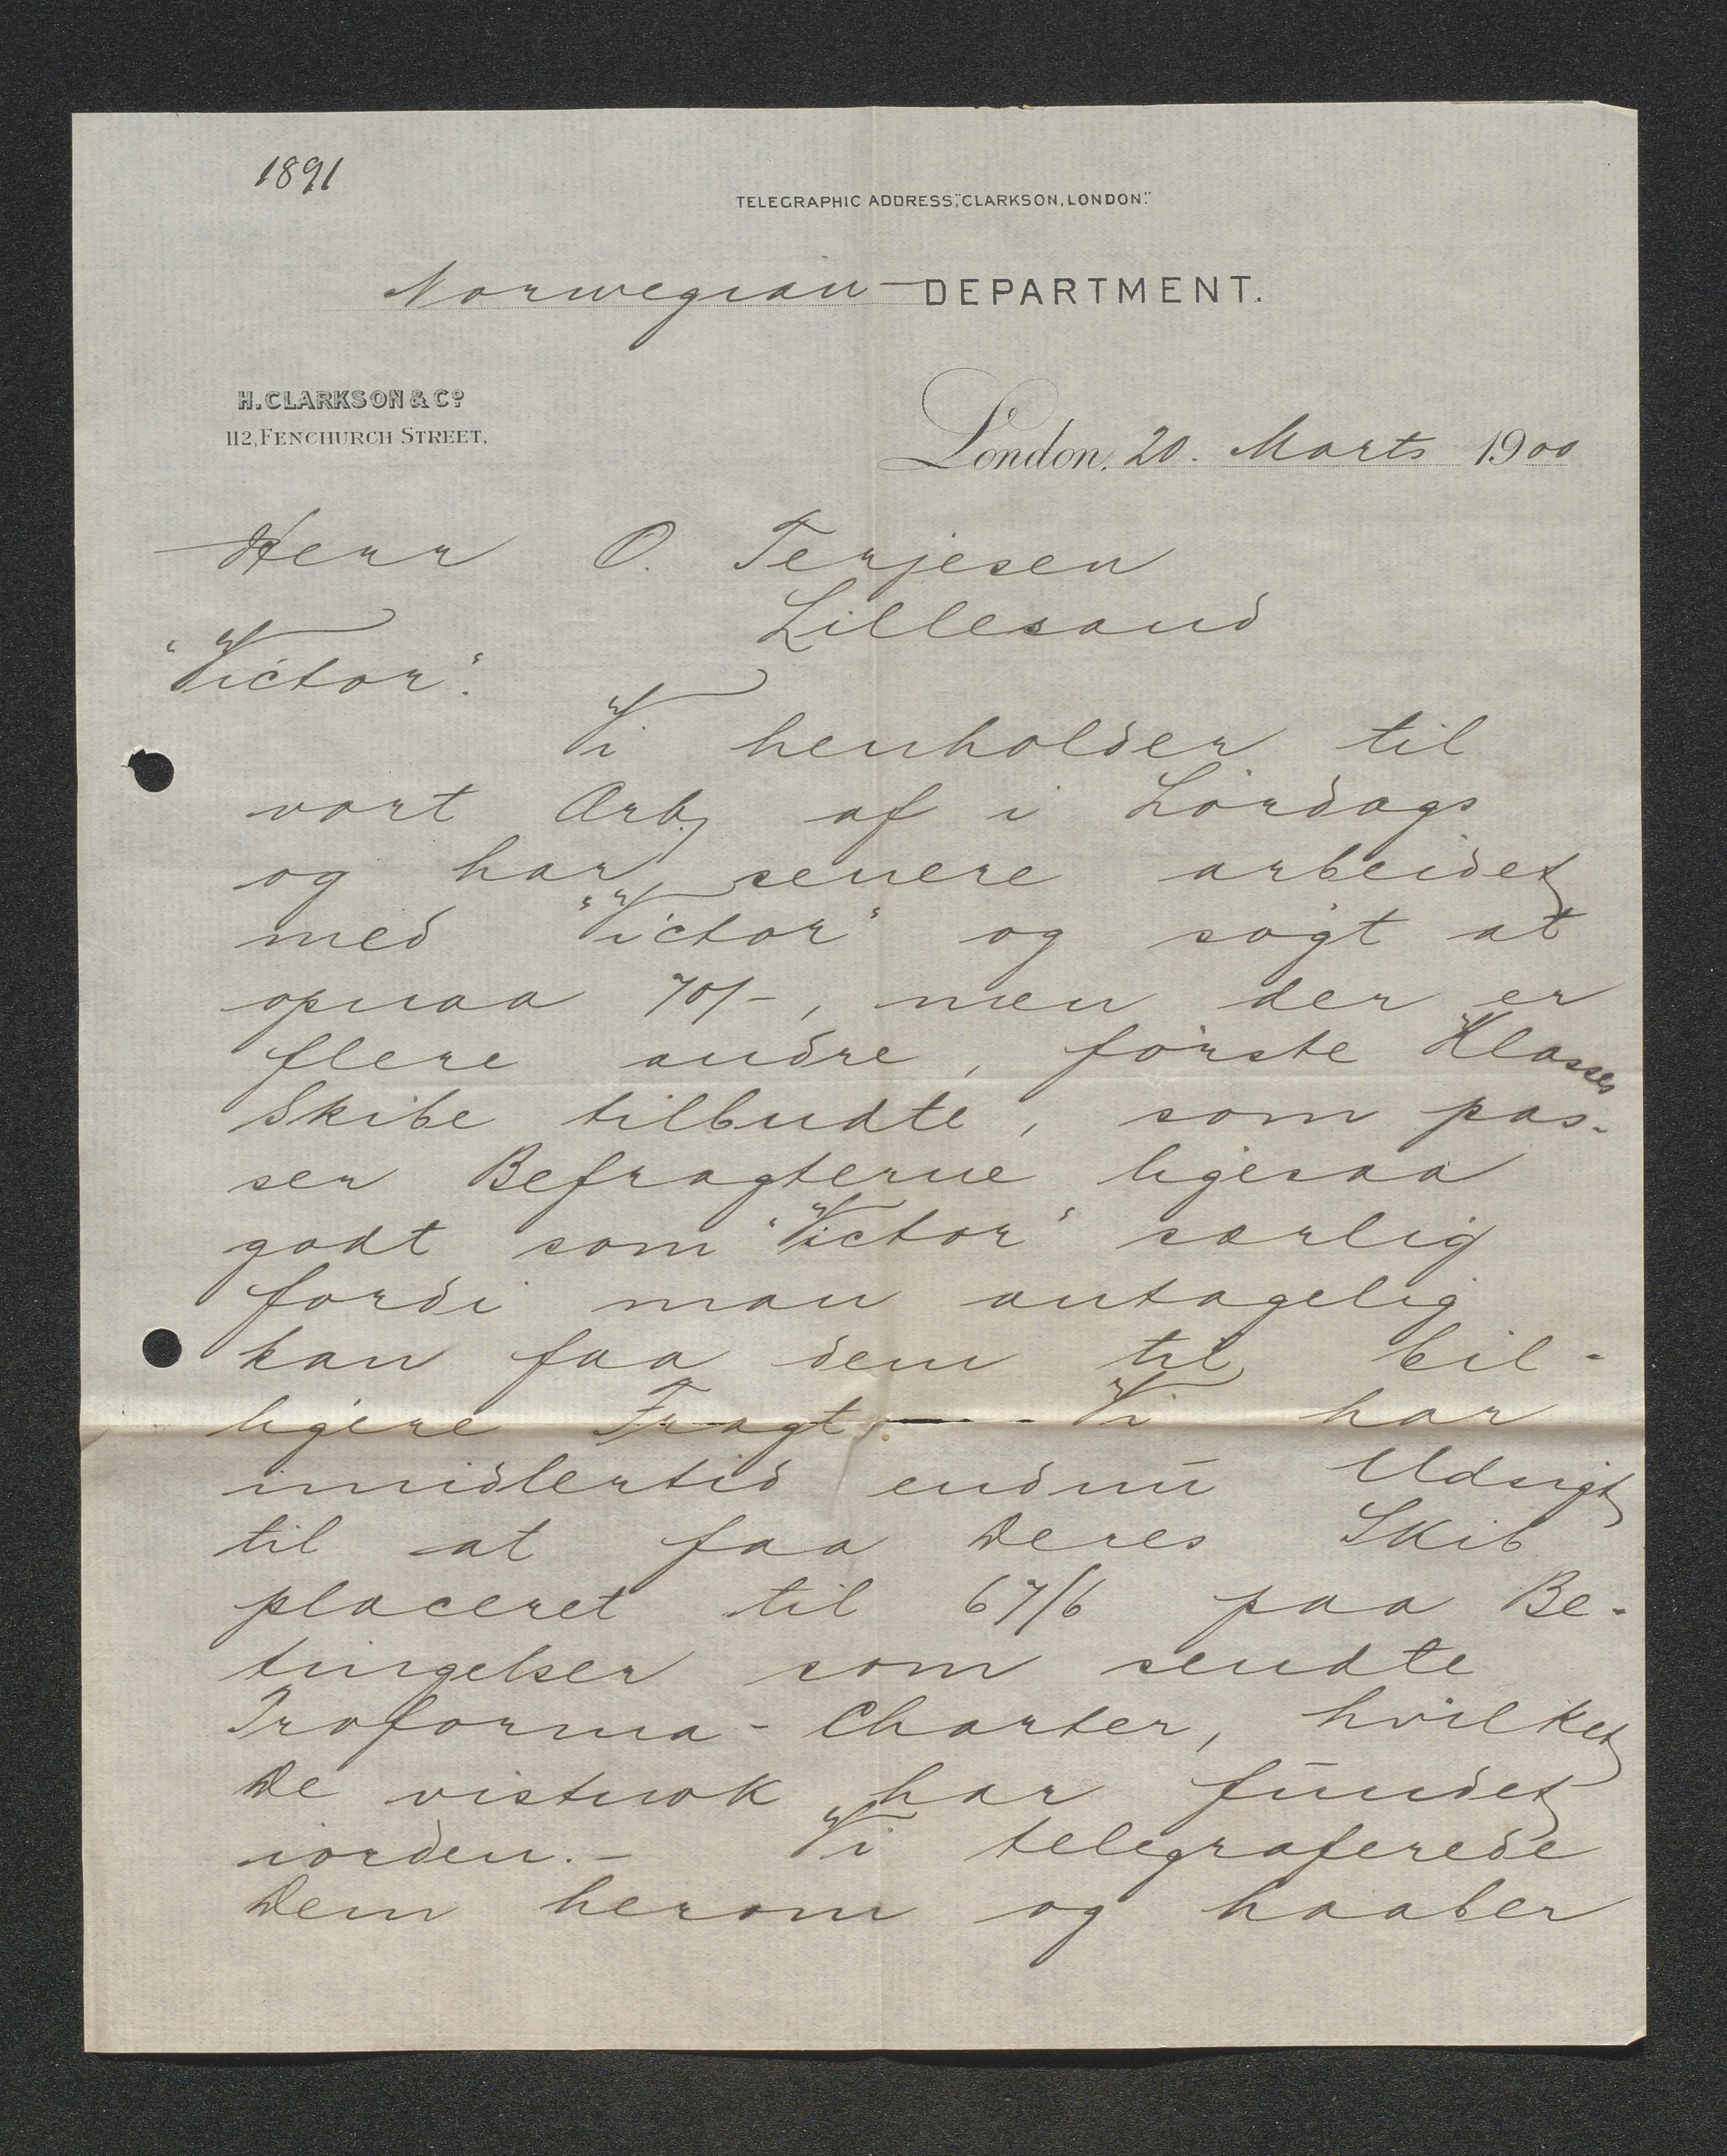 1891
TELEGRAPHIC ADDRESS, "CLARKSON, LONDON."
Norwegian DEPARTMENT.
H. CLARKSON & Co.
112, FENCHURCH STREET,
London, 20. Marts 1900
Herr O. Terjesen
Lillesand
"Victor".
Vi henholder til
vort Arb. af i Lørdags
og har senere arbeidet
med "Victor" og søgt at
opnaa 70/-, men der er
flere andre, første Klasses
Skibe tilbudte, som pas-
ser Befragterne ligesaa
godt som "Victor" særlig
fordi man antagelig
kan faa dem til bil-
ligere Fragt. - Vi har
imidlertid endnu Udsigt
til at faa Deres Skib
placeret til 67/6 paa Be-
tingelser som sendte
Proforma-Charter, hvilket
De vistnok har fundet
iorden. - Vi telegraferede
Dem herom og haaber